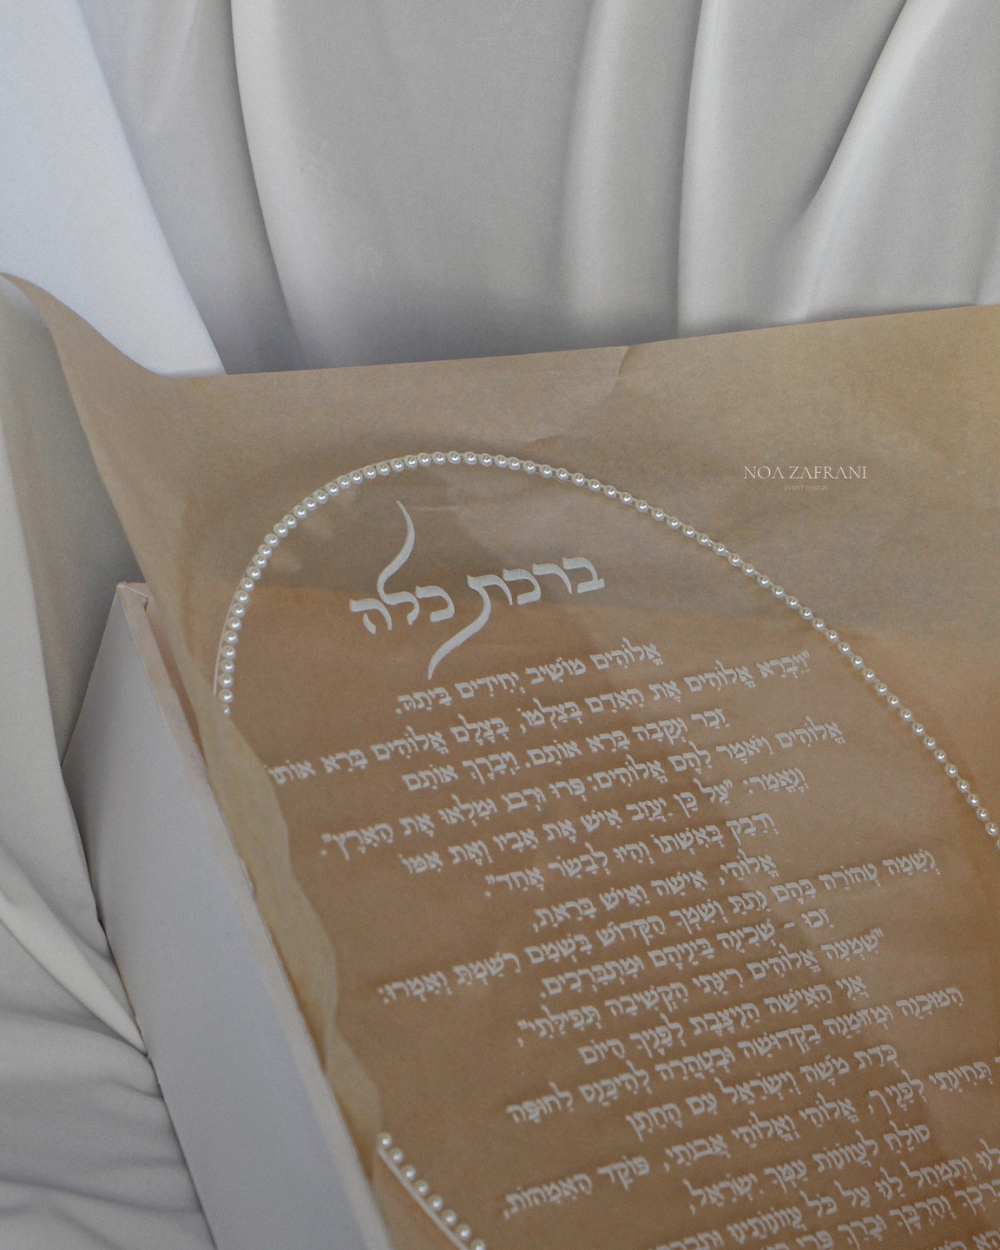 NOA ZAFRANI
ברכת כלה
אֱלוֹהִים מוֹשִׁיב יְחִידִים בַּיְתָה.
"וַיִּבְרָא אֱלוֹהִים אֶת הָאָדָם בְּצַלְמוֹ, בְּצֶלֶם אֱלוֹהִים בָּרָא אוֹתוֹ
זָכָר וּנְקֵבָה בָּרָא אוֹתָם. וַיְבָרֶךְ אוֹתָם
אֱלוֹהִים וַיֹּאמֶר לָהֶם אֱלוֹהִים: פְּרוּ וּרְבוּ וּמִלְאוּ אֶת הָאָרֶץ".
וְנֶאֱמַר: "עַל כֵּן יַעֲזֹב אִישׁ אֶת אָבִיו וְאֶת אִמּוֹ
וְדָבַק בְּאִשְׁתּוֹ וְהָיוּ לְבָשָׂר אֶחָד".
אֱלוֹהַי, אִישָׁה וְאִישׁ בָּרָאתָ,
וְנְשָׁמָה טְהוֹרָה בָּהֶם נָתַתָּ וְשִׁמְךָ הַקָּדוֹשׁ בִּשְׁמָם רָשַׁמְתָּ וְאָמְרוּ:
זָכוּ - שְׁכִינָה בֵּינֵיהֶם וּמִתְבָּרְכִים.
"שִׁמְעָה אֱלוֹהִים רִינָּתִי הַקְשִׁיבָה תְּפִילָּתִי",
אֲנִי הָאִישָׁה הַנִּיצֶּבֶת לְפָנֶיךָ הַיּוֹם
הַמּוּכָנָה וּמְזוּמֶּנֶת בִּקְדוּשָּׁה וּבְטָהֳרָה לְהִיכָּנֵס לְחוּפָּה
כְּדַת מֹשֶׁה וְיִשְׂרָאֵל עִם הֶחָתָן
תְּחִינָתִי לְפָנֶיךָ, אֱלוֹהַי וֵאֱלוֹהֵי אֲבוֹתַי, פּוֹקֵד הָאִמָּהוֹת,
סוֹלֵחַ לַעֲוֹנוֹת עַמְּךָ יִשְׂרָאֵל,
וְתִמְחַל לָנוּ עַל כָּל עֲוֹנוֹתֵינוּ